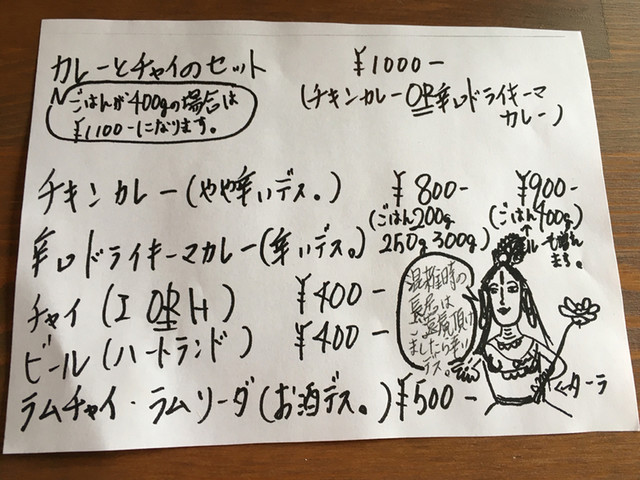 カレーとチャイのセット ¥1000-
(チキンカレーOR辛口ドライキーマ
カレー)
ごはんが400gの場合は
¥1100-になります。
チキンカレー(やや辛いデス。) ¥800- ¥900-
(ごはん200g (ごはん400g)
250g 300g)
ます。
辛口ドライキーマカレー(辛いデス。)
チャイ(I OR H) ¥400-
ビール(ハートランド) ¥400-
ラムチャイ・ラムソーダ(お酒デス。) ¥500-
混雑時の
長居は
ご遠慮頂け
ましたら幸い
デス。
←ターラ